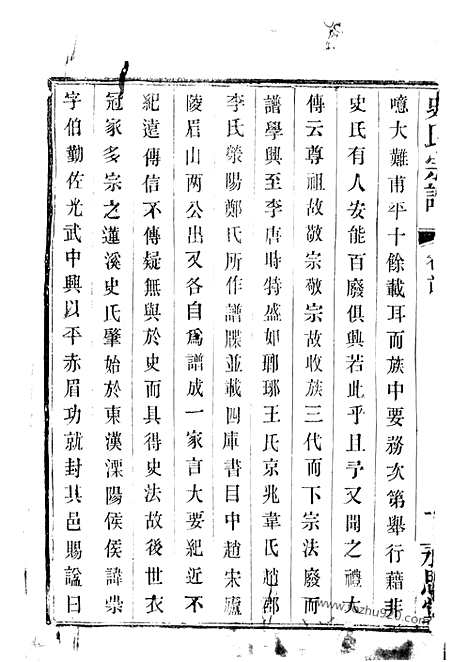 史氏宗譜
卷首
噫大難甫平十餘載耳而族中要務次第舉行藉非
史氏有人安能百廢俱興若此乎且予又聞之禮大
傳云尊祖故敬宗敬宗故收族三代而下宗法廢而
譜學興至李唐時特盛如瑯琊王氏京兆韋氏趙郡
李氏滎陽鄭氏所作譜牒並載四庫書目中趙宋廬
陵眉山两公出又各自爲譜成一家言大要紀近不
紀遠傳信不傳疑無與於史而具得史法故後世衣
冠家多宗之蓮溪史氏肇始於東漢溧陽侯侯諱崇
字伯勤佐光武中興以平赤眉功就封其邑賜諡曰
www.jiazhu920.com